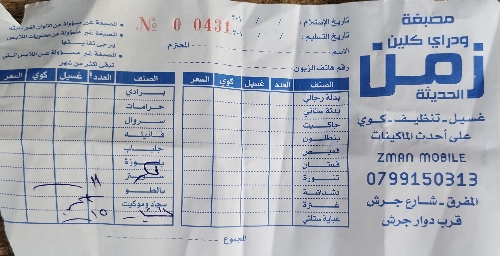 مصبغة
ودراي كلين
زمن
الحديثة
غسيل - تنظيف - كوي
على أحدث الماكينات
ZMAN MOBILE
0799150313
المفرق - شارع جرش
قرب دوار جرش
تاريخ الإستلام : / / ٢٠١
تاريخ التسليم : / / ٢٠١
الاسم : المحترم
رقم هاتف الزبون
№ 0 0431
المصبغة غير مسؤولة عن
المصبغة غير مسؤولة عن محتويات الملابس
يرجى تفقدها
المصبغة غير مسؤولة عن الملابس التي
تبقى أكثر من شهر
الصنف العدد غسيل كوي السعر
بدلة رجالي
بدلة ستاتي
جاكيت
بنطلون
قميص
فستان
تنورة
دشداشة
غترة
عباية ستاتي
الصنف العدد غسيل كوي السعر
برادي
حرامات
سروال
فانيلة
جلباب
بلوزة
بالطو
سجاد وموكيت
١١
١٥
المجموع